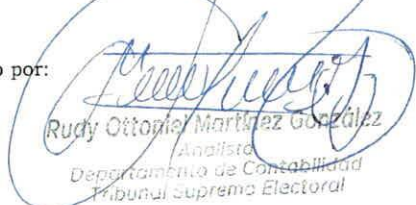 o por:
Rudy Ottoniel Martínez González
Analista
Departamento de Contabilidad
Tribunal Supremo Electoral